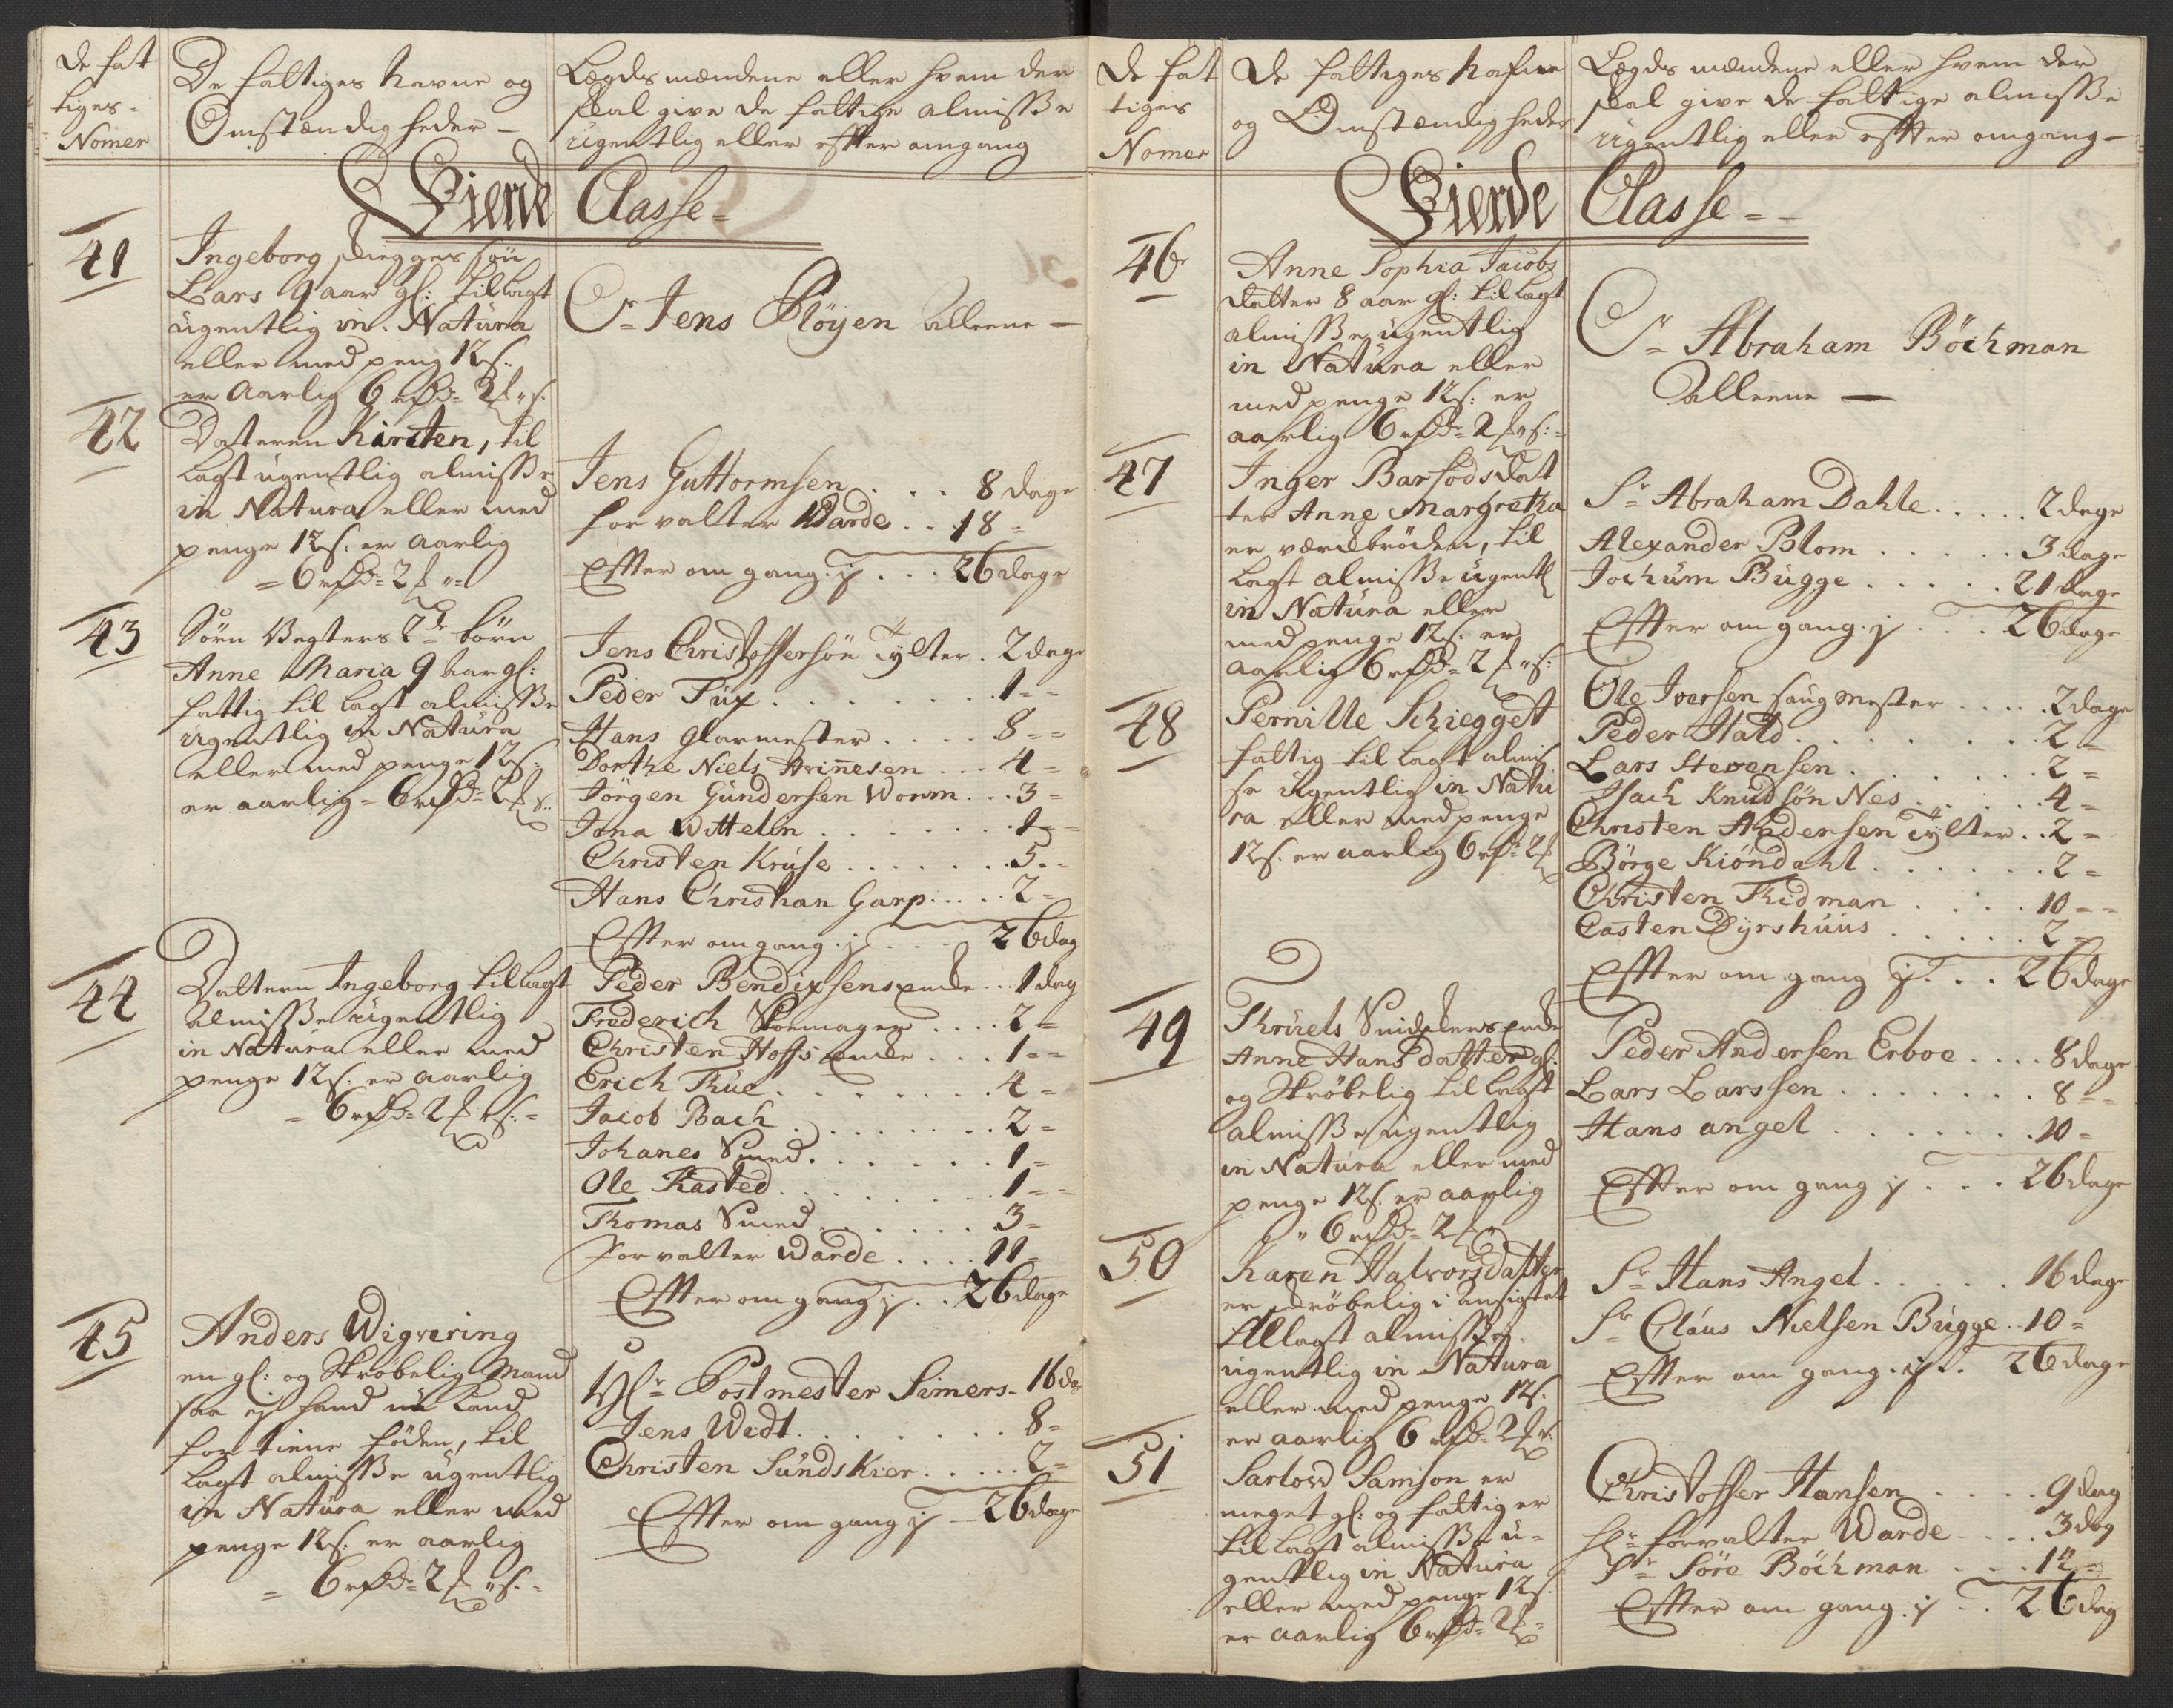 De fat
tiges-
Nomer
De fattiges Navne og
Omstændigheder -
Lægds mændene eller hvem der
skal give de fattige almisse
ugentlig eller efter omgang
Fierde Classe =
41
Ingeborg Skegges søn
Lars 9 aar gl: tillagt
ugentlig in Natura
eller med peng 12 s:
er Aarlig 6 rd= 2 " s.
Sr Jens Pløyen alleene -
42
Datteren Kirsten, til
lagt ugentlig almisse
in Natura eller med
penge 12 s: er aarlig
= 6 rd= 2 " =
Jens Guttormsen . . . 8 dage
forvalter Warde . . 18 =
Efter om gang . . . 26 dage
43
Sørn Vegters 2de børn
Anne Maria 9 aar gl:
fattig til lagt almisse
ugentlig in Natura
eller med penge 12 s:
er aarlig = 6 rd= 2
Jens Christoffersøn Tylter . 2 dage
Peder Fux . . . . . . . 1 - -
Hans glarmester . . . . 8 - -
Dorthe Niels Arinnesen . . . 4 =
Jørgen Gundersen Worm . . . 3 =
Jona Wittelin . . . . . . . 1 - -
Christen Kruse . . . . . . 5 - -
Hans Christian Garp . . . . . 2 =
Efter omgang . . . 26 dag
44
Dattern Ingeborg tillagt
almisse ugentlig
in Natura eller med
penge 12 s: er aarlig
= 6 rd= 2 s: =
Peder Bendixsens enke . . . 1 dag
Frederich Skomager . . . . 2 =
Christen Hoffs enke . . . 1 - -
Erich Thue . . . . . . . 4 -
Jacob Bach . . . . . . . 2 -
Johanes Smed . . . . . . 1 =
Ole Kasted . . . . . . . . 1 - -
Thomas Smed . . . . . . 3 =
forvalter Warde . . . . 11 =
Efter om gang . . 26 dage
45
Anders Wigvering
en gl: og Skrøbelig Mand
saa ej hand nu kand
for tiene føden, til
lagt almisse ugentlig
in Natura eller med
penge 12 s: er aarlig
= 6 rd= 2 " s. =
Postmester Simers - 16 da
Jens Wedt . . . . . . . . 8 =
Christen Sundskier . . . . . 2 =
Efter om gang - 26 dage
De fat
tiges
Nomer
De fattiges Nafne
og Omstændigheder
Lægds mændene eller hvem der
skal give de fattige almisse
ugentlig eller efter omgang -
Fierde Classe = -
46
Anne Sophia Jacobs
datter 8 aar gl: tillagt
almisse ugentlig
in Natura eller
med penge 12 s: er
aarlig 6 rd= 2 " s: =
Sr Abraham Böckman
alleene -
47
Inger Barfodsdat
ter Anne Margretha
er værkbröden, til
lagt almisse ugentl
in Natura eller
med penge 12 s: er
aarlig 6 rd= 2 " s:
Sr Abraham Dahle . . . . . 2 dage
Alexander Blom . . . . . . 3 dage
Jochum Bugge . . . . . 21 dage
Efter om gang . . . 26 dage
48
Pernille Schiegget
fattig til lagt almis
se ugentlig in Natu
ra eller med penge
12 s: er aarlig 6 rd= 2
Ole Iversen Saugmester . . . . 2 dage
Peder Hald . . . . . . . . 2 =
Lars Stevensen . . . . . . . 2 =
Isach Knudsøn Nes . . . . . 4 =
Christen Andersen Tylter . . 2 =
Børge Kiöndahl . . . . . . . 2 =
Christen Tidman . . . . 10 - -
Casten Dyrshuus . . . . . . 2 =
Efter om gang . . . 26 dage
49
Thruels Snidelers enke
Anne Hans datter gl:
og Skrøbelig tillagt
almisse ugentlig
in Natura eller med
penge 12 s: er aarlig
" 6 rd= 2
Peder Andersen Erboe . . . . 8 dage
Lars Larssen . . . . . . . 8 - -
Hans angel . . . . . . . 10 =
Efter om gang . . . 26 dage
50
Karen Halvorsdatter
er skröbelig i ansigtet
tillagt almisse
ugentlig in Natura
eller med penge 12 s:
er aarlig 6 rd= 2
Sr Hans Angel . . . . . 16 dage
Sr Claus Nielsen Bugge . . 10 =
Efter om gang . . 26 dage
51
Sarlowd Samson er
meget gl: og fattig er
til lagt almisse u=
gentlig in Natura
eller med penge 12 s:
er aarlig 6 rd= 2
Christoffer Hansen . . . . 9 dag
Hr forvalter Warde . . . . 3 dag
Sr Söre Böchman . . . 14 =
Efter om gang . . 26 dag